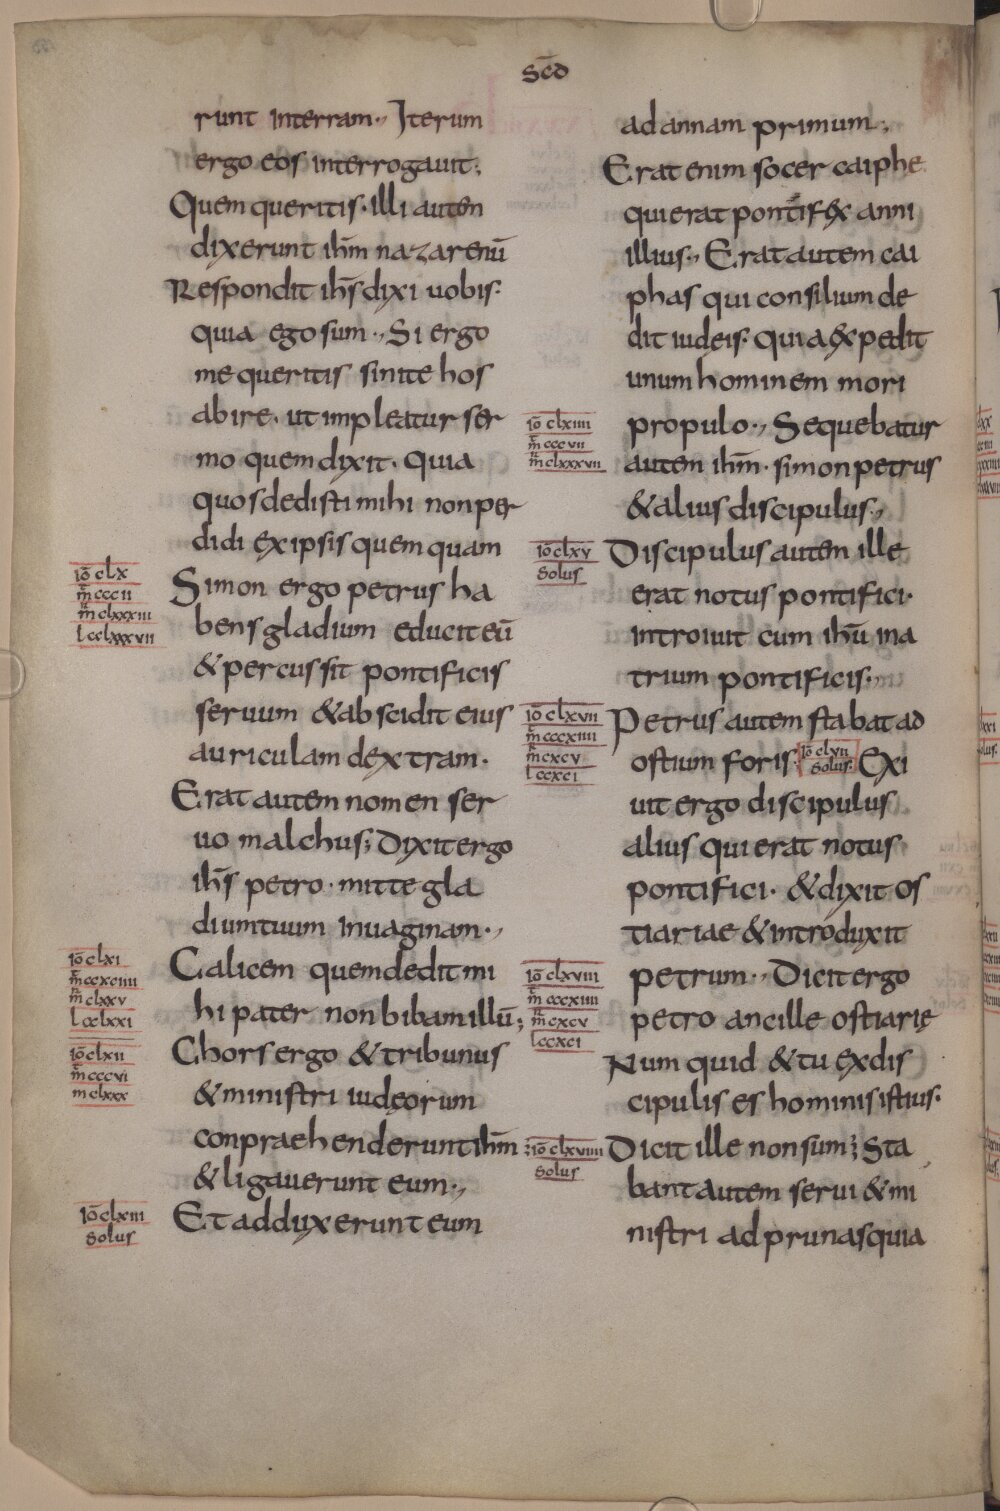 scd̄
runt interram·, Iterum
ergo eos interrogauit;
Quem queritis· illi autem
dixerunt ihm̄ nazarenū
Respondit ihs̄ dixi uobis·
quia ego sum·, Si ergo
me queritis sinite hos
abire· ut impleatur ser
mo quem dixit· Quia
quos dedisti mihi non per
didi exipsis quem quam
iō clx
m̄ cccii
m̄ clxxxiii
l cclxxxvii
Simon ergo petrus ha
bens gladium educit eū
& percussit pontificis
seruum & abscidit eius
auriculam dextram·
Erat autem nomen ser
uo malchus; Dixit ergo
ihs̄ petro· mitte gla
dium tuum inuaginam·,
iō clxi
m̄ ccxciiii
m̄ clxxv
l cclxxi
Calicem quem dedit mi
hi pater non bibam illū;
iō clxii
m̄ cccvi
m clxxx
Chors ergo & tribunus
& ministri iudęorum
conpraehenderunt ihm̄;
& ligauerunt eum·,
iō clxiii
solus
Et adduxerunt eum
ad annam primum·,
Erat enim socer caiphe
qui erat pontifex anni
illius·, Erat autem cai
phas qui consilium de
dit iudęis· quia expedit
unum hominem mori
iō clxiiii
m̄ cccvii
m̄ clxxxvii
pro pulo·, Sequebatur
autem ihm̄· simon petrus
& alius discipulus·,
iō clxv
solus
Discipulus autem ille
erat notus pontifici·
introiuit cum ihū ina
trium pontificis·
iō clxvii
m̄ cccxiiii
m̄ cxcv
l ccxci
Petrus autem stabat ad
ostium foris· iō clvii solus· Exi
uit ergo discipulus
alius qui erat notus
pontifici· & dixit os
tiariae & introduxit
iō clxviii
m̄ cccxiiii
m̄ cxcv
l ccxci
petrum·, Dicit ergo
petro ancille ostiarię
Num quid & tu exdis
cipulis es hominis istius·
iō clxviiii
solus
Dicit ille non sum; Sta
bant autem serui & mi
nistri ad prunas quia